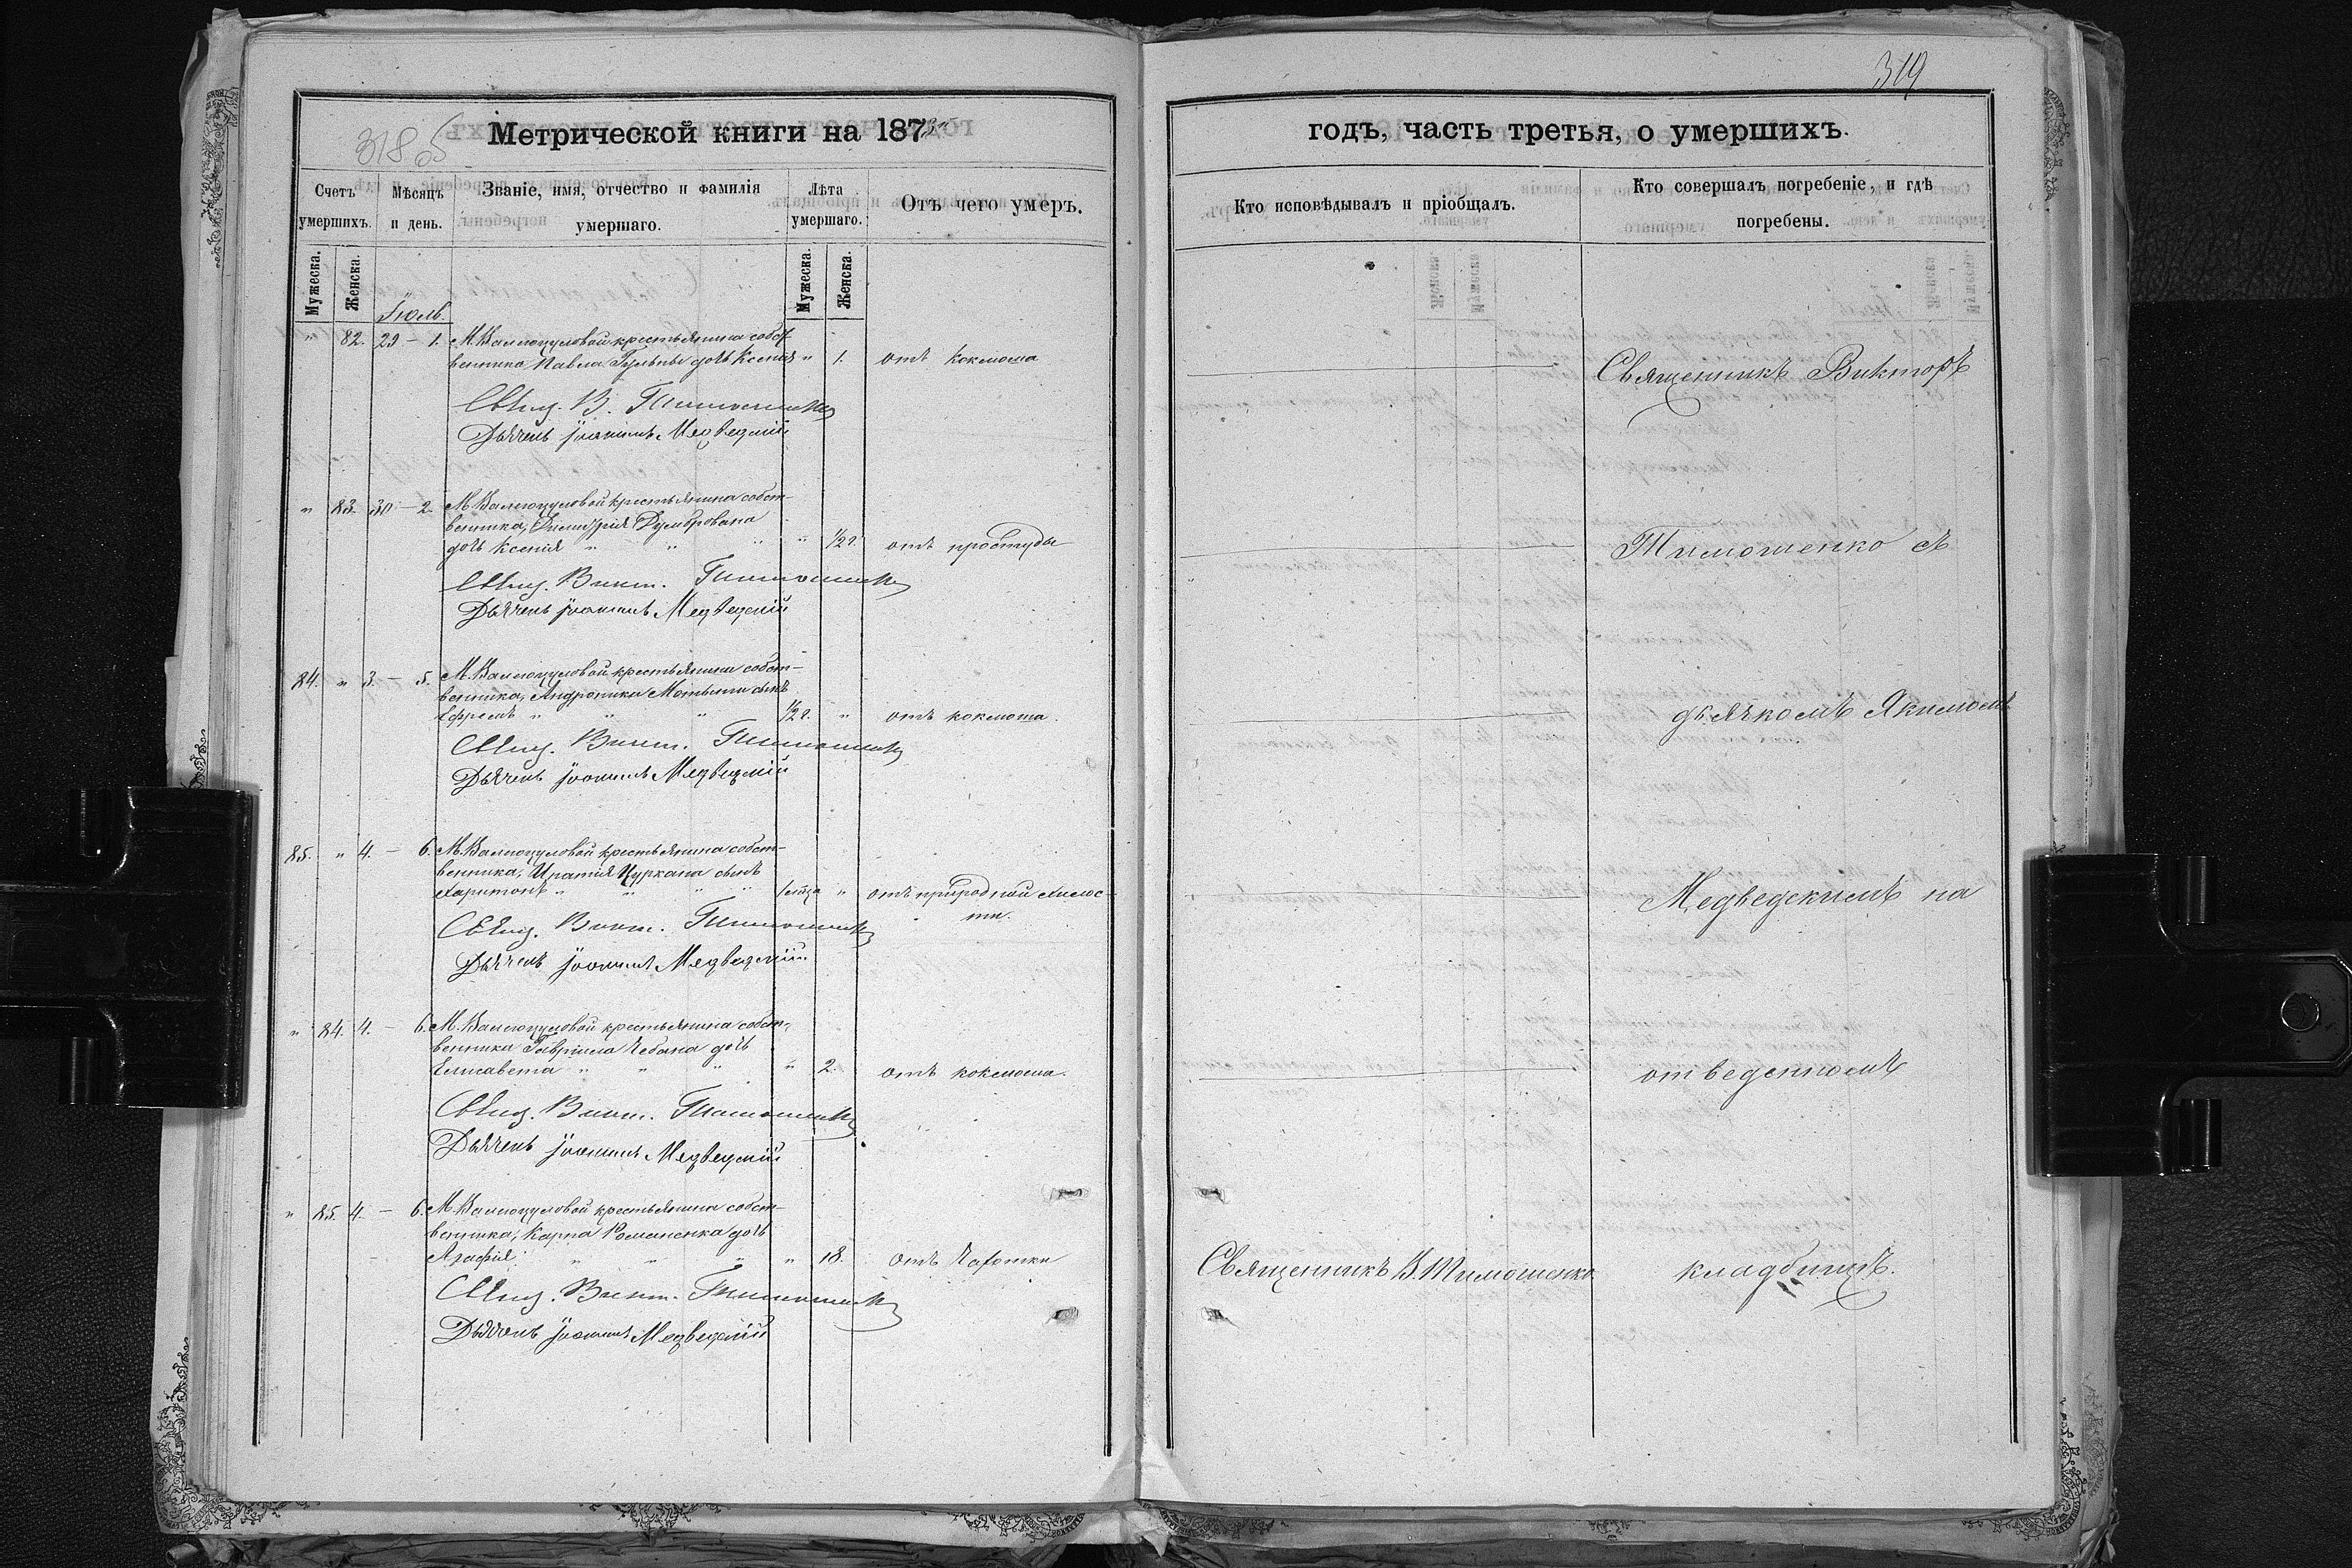 319
318 об
Метрической книги на 1873й
годъ, часть третья, о умершихъ.
Счетъ умершихъ.
Мѣсяцъ и день.
Званіе, имя, отчество и фамилія умершаго.
Лѣта умершаго.
Отъ чего умеръ.
Кто исповѣдывалъ и пріобщалъ.
Кто совершалъ погребеніе, и гдѣ погребены.
Мужеска.
Женска.
Мужеска.
Женска.
Іюль.
" 82. 29 – 1. М. Валегоцуловой крестьянина собст-
венника Павла Гульпы дочь Ксенія " 1. отъ коклюша
Свящ. В. Тимошенко
Дьячекъ Іоакимъ Медведскій
" 83. 30 – 2. М. Валегоцуловой крестьянина собст-
венника, Димитрія Думбрована
дочь Ксенія " " " " 1/2 г. отъ простуды
Свящ. Викт. Тимошенко
Дьячекъ Іоакимъ Медведскій
84. " 3. – 5. М. Валегоцуловой крестьянина собст-
венника, Андроника Мотыпи сынъ
Ефремъ " " " 1/2 г. " отъ коклюша.
Свящ. Викт. Тимошенко
Дьячекъ Іоакимъ Медведскій
85. " 4. – 6. М. Валегоцуловой крестьянина собст-
венника, Игнатія Цуркана сынъ
Харитонъ " " " " " отъ природной слабос-
ти.
Свящ. Викт. Тимошенко
Дьячекъ Іоакимъ Медведскій
" 84. 4. – 6. М. Валегоцуловой крестьянина собст-
венника Гавріила Чебана дочь
Елисавета " " " " 2. отъ коклюша.
Свящ. Викт. Тимошенко
Дьячекъ Іоакимъ Медведскій
" 85. 4. – 6. М. Валегоцуловой крестьянина собст-
венника, Карпа Романенка дочь
Агафія " " " " 18. отъ чахотки
Свящ. Викт. Тимошенко
Дьячекъ Іоакимъ Медведскій
Священникъ В. Тимошенко
Священникъ Викторъ
Тимошенко съ
дьячкомъ Якимомъ
Медведскимъ на
отведенномъ
кладбищѣ.